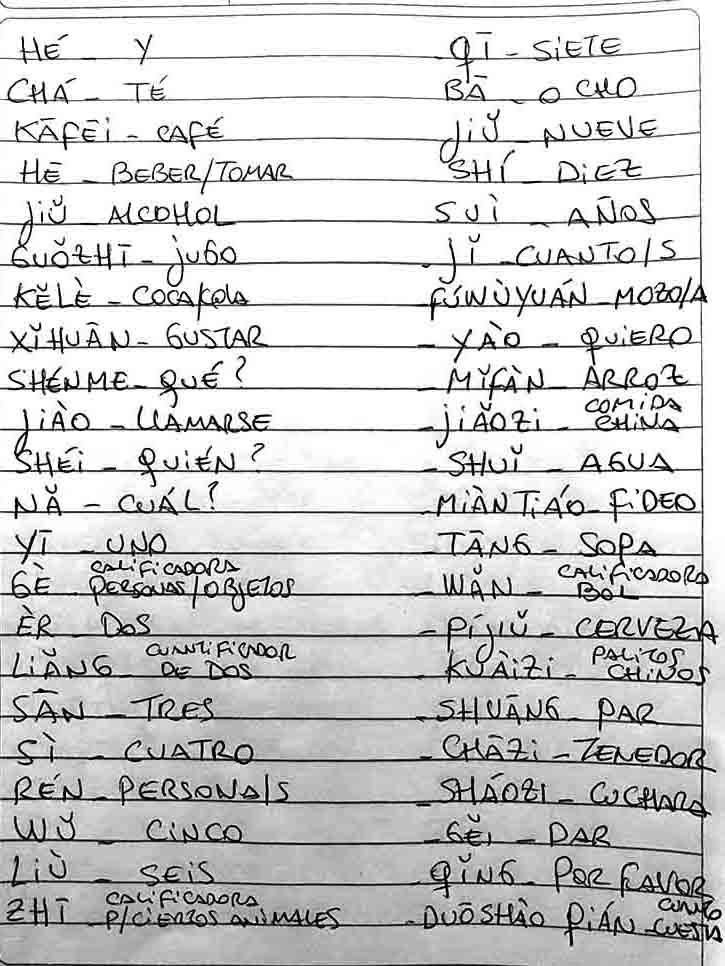 HÉ - Y
CHÁ - TÉ
KĀFĒI - CAFÉ
HĒ - BEBER/TOMAR
JIǓ ALCOHOL
GUǑZHĪ - JUGO
KĚLÈ - COCA/COLA
XǏHUĀN - GUSTAR
SHÉNME - QUÉ?
JIÀO - LLAMARSE
SHÉI - QUIÉN?
NǍ - CUÁL?
YĪ - UNO
GÈ CALIFICADORA PERSONAS/OBJETOS
ÈR DOS
LIǍNG CUANTIFICADOR DE DOS
SĀN - TRES
SÌ - CUATRO
RÉN - PERSONA/S
WǓ - CINCO
LIÙ - SEIS
ZHĪ CALIFICADORA P/CIERTOS ANIMALES
QĪ - SIETE
BĀ - OCHO
JIǓ - NUEVE
SHÍ DIEZ
SUÌ - AÑOS
JǏ - CUANTO/S
FÚWÙYUÁN - MOZO/A
- YÀO - QUIERO
- MǏFÀN - ARROZ
- JIǍOZI - COMIDA CHINA
- SHUǏ - AGUA
- MIÀNTIÁO - FIDEO
- TĀNG - SOPA
- WǍN - CALIFICADORA BOL
- PÍJIǓ - CERVEZA
- KUÀIZI - PALITOS CHINOS
- SHUĀNG - PAR
- CHĀZI - TENEDOR
- SHÁOZI - CUCHARA
- GĚI - DAR
- QǏNG - POR FAVOR
- DUŌSHÀO QIÁN - CUANTO CUESTA